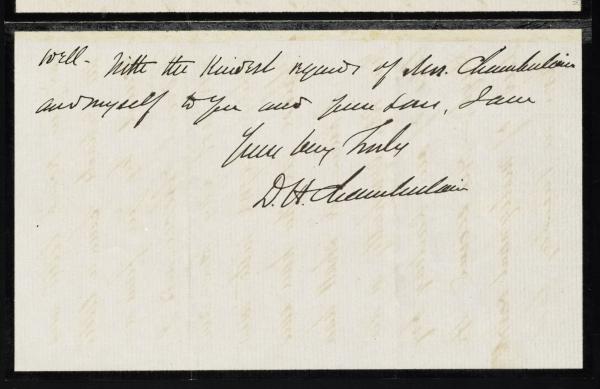 well. With the Kindest regards of Mrs. Chamberlain
and myself to you and your sons, I am
Yours very Truly
D. H. Chamberlain